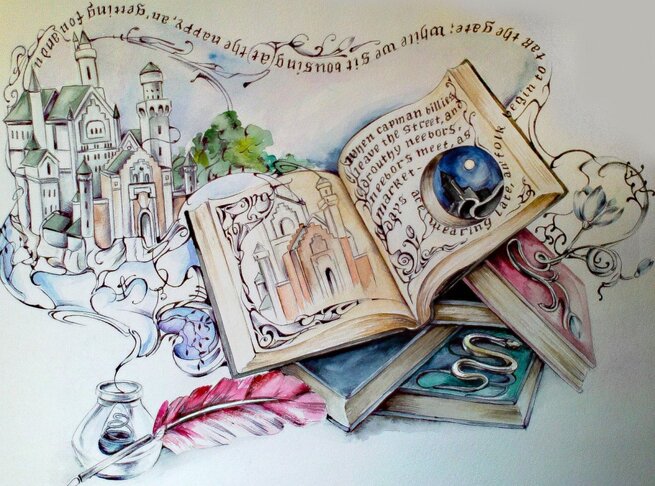 When capman billies
leave the street, and
drouthy neebors,
neebors meet, as
market-
days
are wearing late, an' folk
begin to tak the gate; while we sit bousing at the nappy, an' getting fou and u